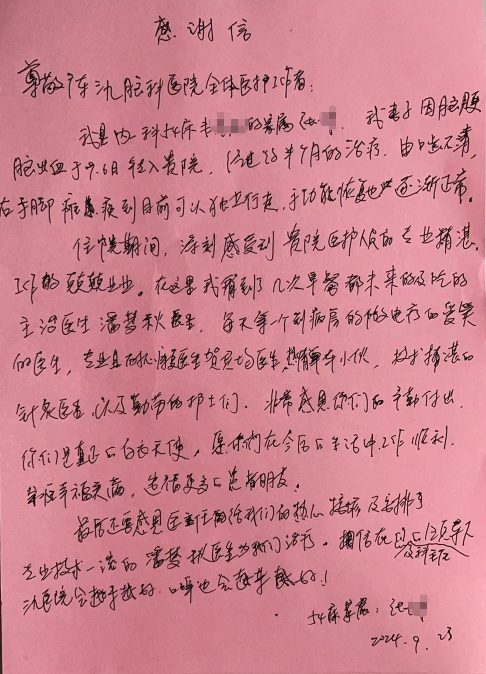 感谢信
尊敬广东九脑科医院全体医护工作者:
我是内一科54床韦的家属, 我妻子因脑梗
脑出血于9.6日转入贵院, 经过近半个月的治疗, 由口齿不清,
右手脚瘫痪到目前可以独立行走, 手功能恢复也逐渐正常。
住院期间, 深刻感受到贵院医护人员的专业精湛,
工作的兢兢业业。在这里我看到了几次早餐都未来的及吃的
主治医生潘梦秋医生, 每天第一个到病房的做电疗的爱笑
的医生, 专业且耐心康复医生贺医生, 帅小伙, 技术精湛的
针灸医生, 以及勤劳的护士们。非常感恩你们的辛勤付出,
你们是真正的白衣天使, 愿你们在今后的生活中工作顺利,
家庭幸福美满, 造福更多的患者朋友。
最后还要感恩医主任给我们的热心接待及安排了
专业技术一流的潘梦秋医生为我们治疗。相信在领导下
及科主任
九医院会越来越好, 口碑也会越来越好!
54床家属:
2024.9.23